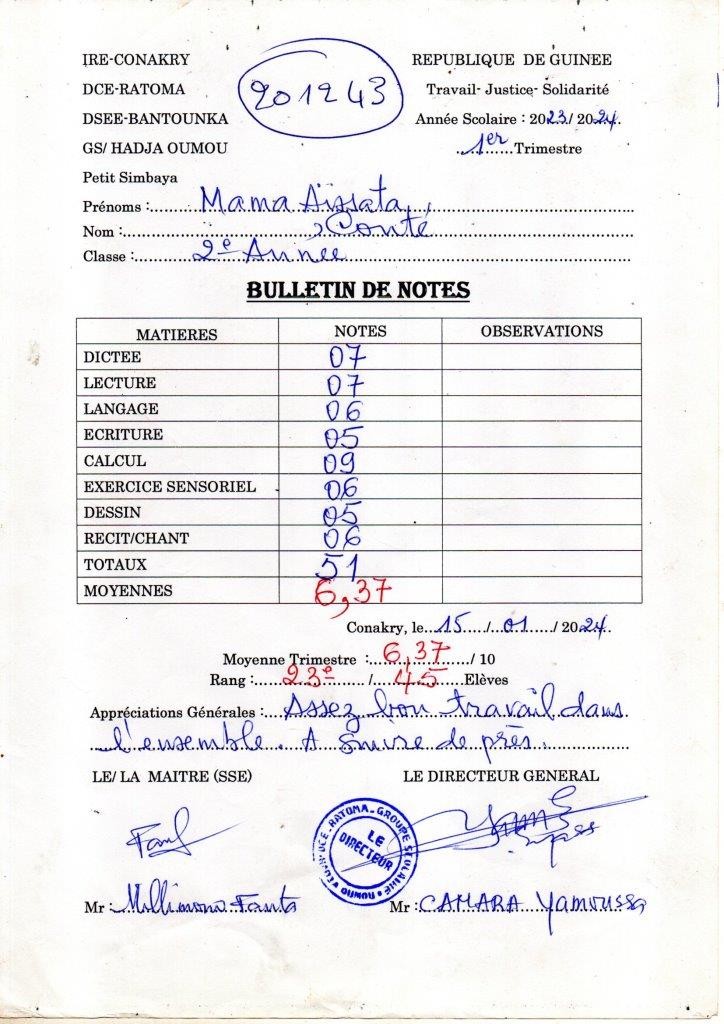 IRE-CONAKRY
REPUBLIQUE DE GUINEE
201243
DCE-RATOMA
Travail- Justice- Solidarité
DSEE-BANTOUNKA
Année Scolaire : 2023/ 2024
GS/ HADJA OUMOU
1er Trimestre
Petit Simbaya
Prénoms : Mama Aïssata
Nom : Conté
Classe : 2e Année
BULLETIN DE NOTES
MATIERES NOTES OBSERVATIONS
DICTEE 07
LECTURE 07
LANGAGE 06
ECRITURE 05
CALCUL 09
EXERCICE SENSORIEL 06
DESSIN 05
RECIT/CHANT 06
TOTAUX 51
MOYENNES 6,37
Conakry, le 15 / 01 / 2024
Moyenne Trimestre : 6,37 / 10
Rang : 23e / 45 Elèves
Appréciations Générales : Assez bon travail dans
l'ensemble. A suivre de près.
LE/ LA MAITRE (SSE)
LE DIRECTEUR GENERAL
DCE-RATOMA-GROUPE SCOLAIRE
LE
DIRECTEUR
OUMOU
Mr : Millimono Fanta
Mr : CAMARA Yamoussa